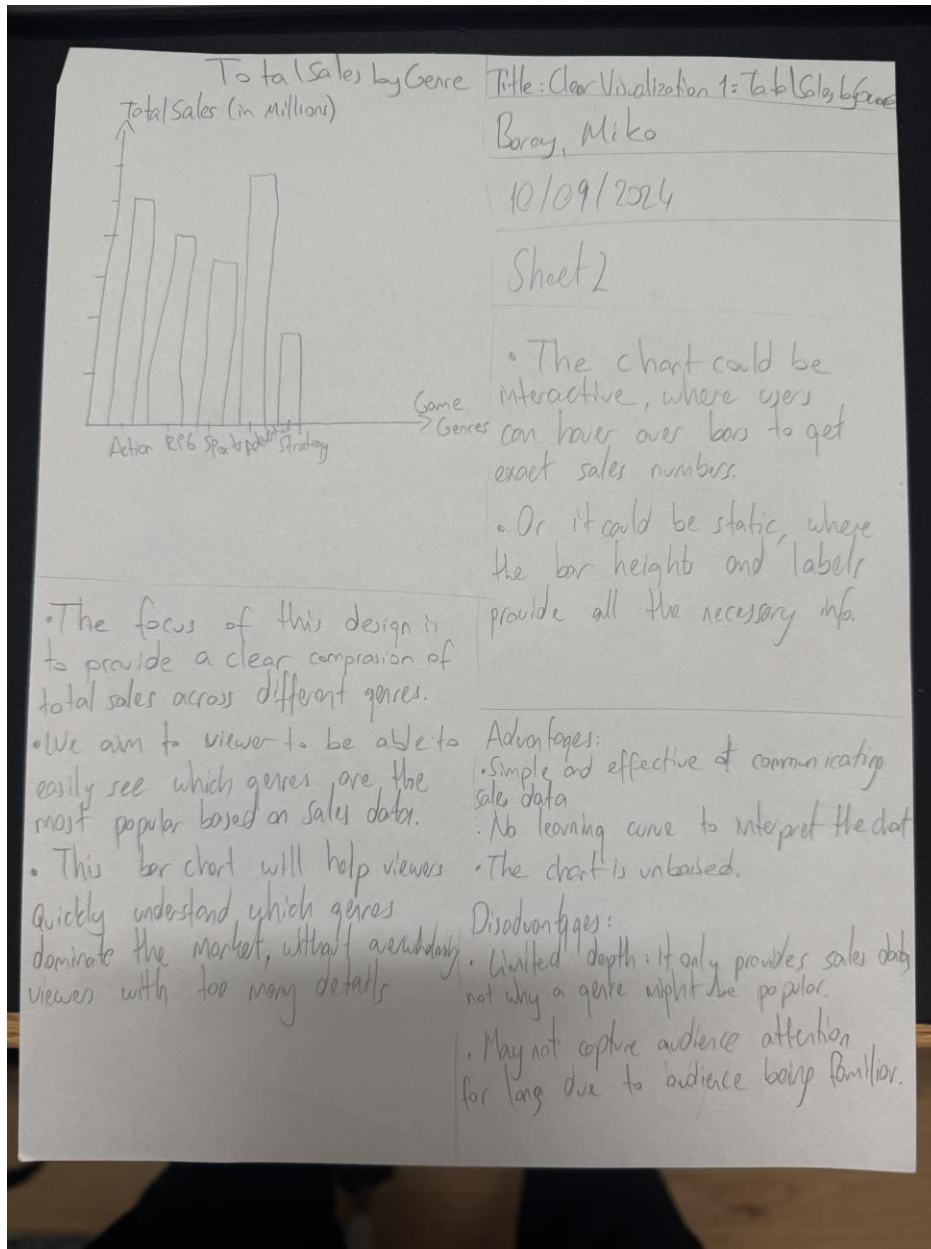 Total Sales by Genre
Total Sales (in Millions)
Action RPG Sports Strategy
Game
Genres
Title: Clear Visualization 1: Total Sales by Genre
Boray, Miko
10/09/2024
Sheet 2
• The chart could be
interactive, where users
can hover over bars to get
exact sales numbers.
• Or it could be static, where
the bar heights and labels
provide all the necessary info.
• The focus of this design is
to provide a clear comprasion of
total sales across different genres.
• We aim to viewer to be able to
easily see which genres are the
most popular based on sales data.
• This bar chart will help viewers
quickly understand which genres
dominate the market, without
viewers with too many details
Advantages:
• Simple and effective at communicating
sales data
• No learning curve to interpret the chart
• The chart is unbaised.
Disadvantages:
• Limited depth: It only provides sales data
not why a genre might be popular.
• May not capture audience attention
for long due to audience being familiar.